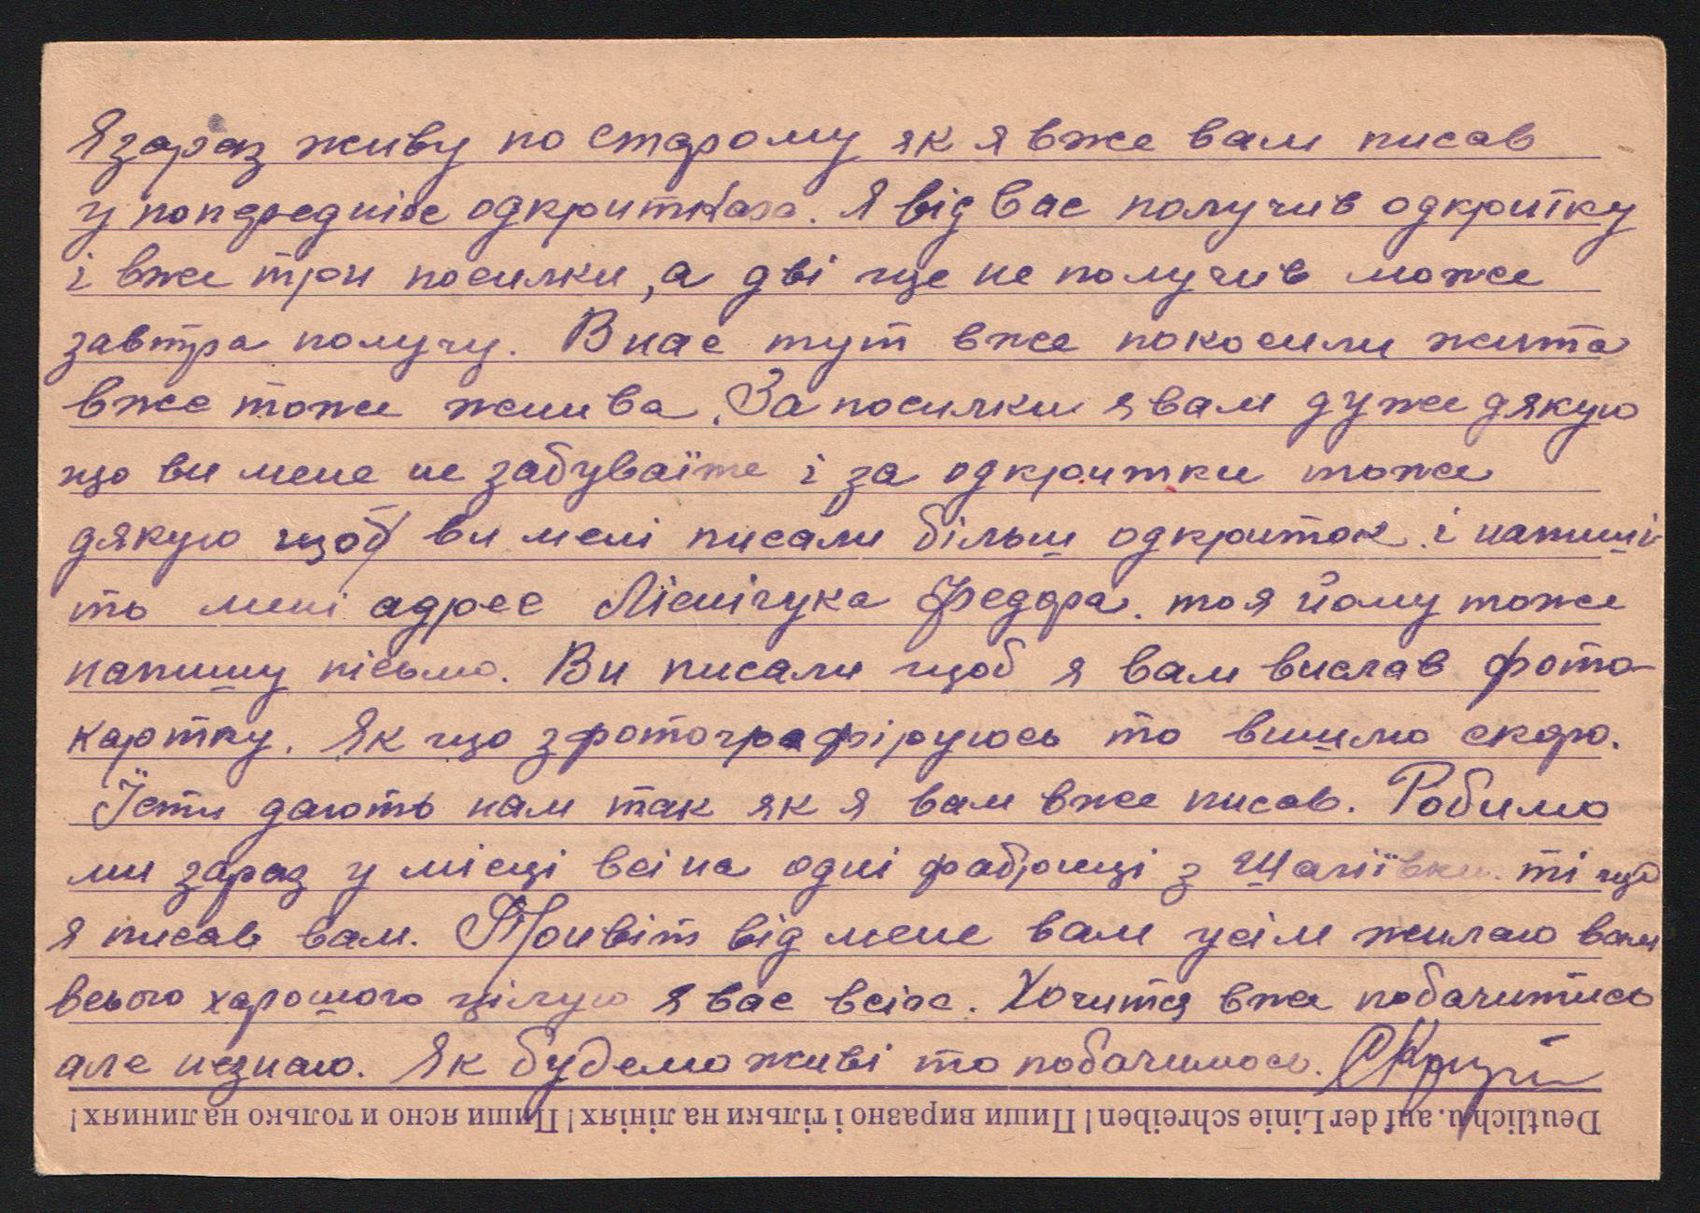 Я зараз живу по старому як я вже вам писав
у попередніх одкритках. Я від вас получив одкритку
і вже три посилки, а дві ще не получив може
завтра получу. В нас тут вже покосили жита
вже тоже жнива. За посилки я вам дуже дякую
що ви мене не забуваїте і за одкритки тоже
дякую щоб ви мені писали більш одкриток. і напиші
ть мені адрес Лісничука Федора. то я йому тоже
напишу пісьмо. Ви писали щоб я вам вислав фото-
картку. Як що зфотографіруюсь то вишлю скоро.
Їсти дають нам так як я вам вже писав. Робимо
ми зараз у місці всі на одні фабриці з ті що
я писав вам. Привіт від мене вам усім жилаю вам
всього харошого цілую я вас всіх. Хочитця вже побачитись
але незнаю. Як будемо живі то побачимось.
Deutlich u. auf der Linie schreiben! Пиши виразно і тільки на лініях! Пиши ясно и только на линиях!